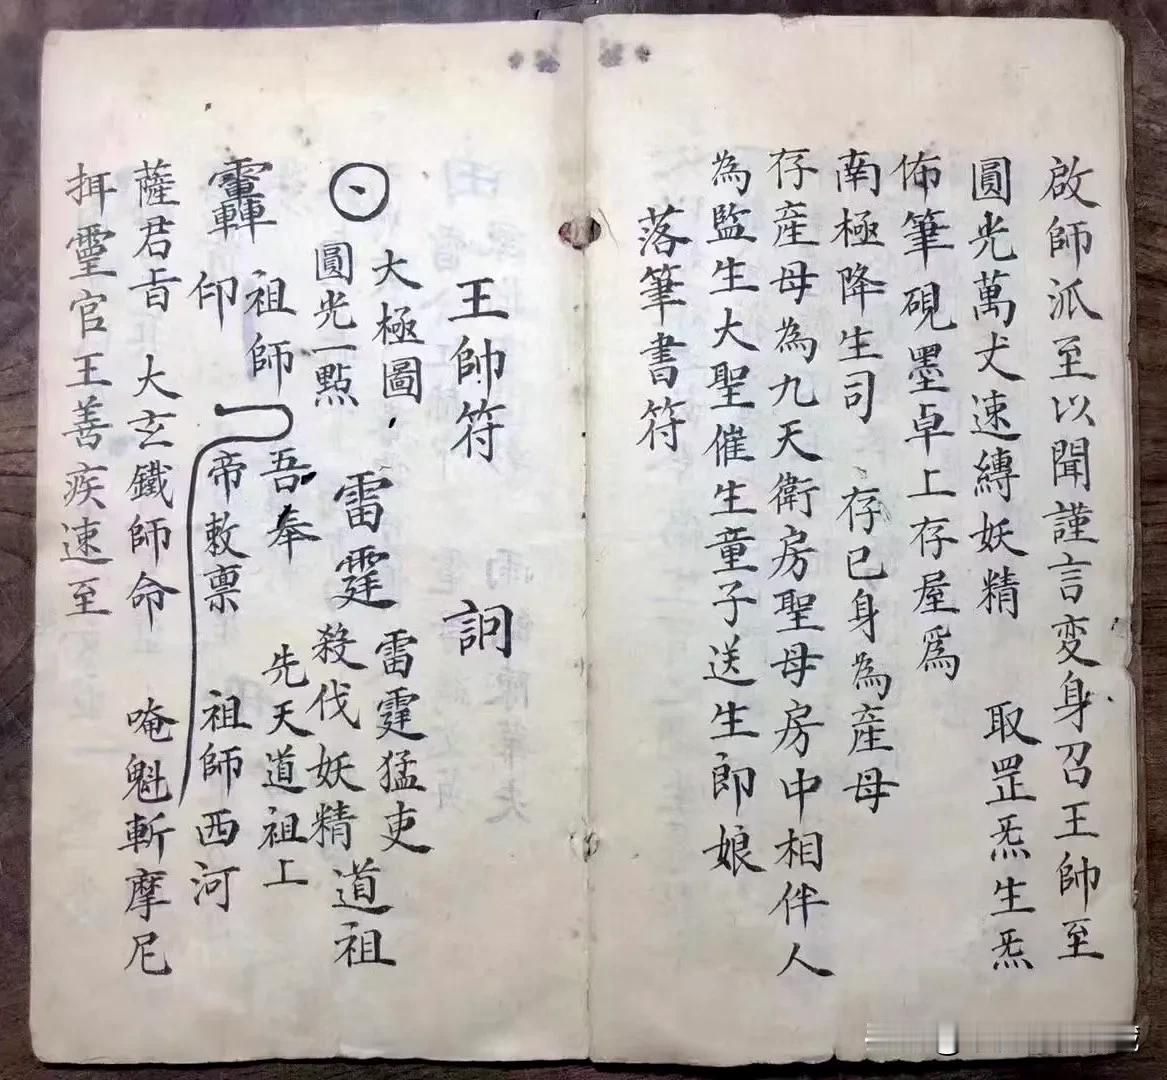 啟師派至以聞謹言変身召王帥至
圓光萬犬速縛妖精 取罡炁生炁
佈筆硯墨卓上存屋爲
南極降生司 存已身為産母
存産母為九天衛房聖母房中相伴人
為監生大聖催生童子送生郎娘
落筆書符
王帥符 詗
大極圖 雷霆猛吏
圓光一點 雷霆 殺伐妖精 道祖
祖師 吾奉 先天道祖上
印 帝敕禀 祖師西河
薩君旨 大玄鐵師命 唵魁斬摩尼
霊官王善疾速至